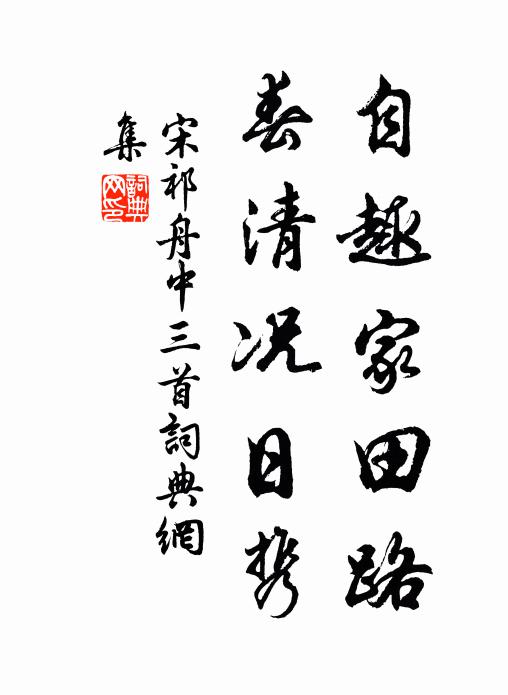 自趣家田路
春清況日携
宋祁舟中三首詞典網
集
詞典
网印